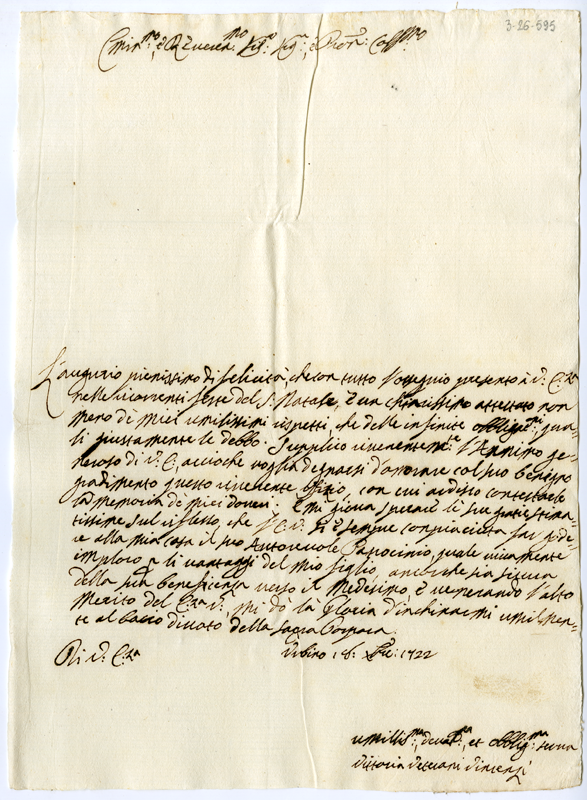 3-26-595
Emin:mo, è Reveren:mo Sig:re Sig:re, è Pron: Coll:mo
L'augurio pienissimo di felicità, che con tutto l'ossequio presento à V: E:za
nelle ricorrenti feste del S: Natale, è un chiarissimo attestato non
meno de miei umilissimi rispetti, che delle infinite obbligaz:ni, qua-
li giustamente le debbo. Supplico riverentem:te l'Animo ge-
neroso di V: E:, accioche voglia degnarsi d'onorare col suo benigno
gradimento questo riverente ofizio, con cui ardisco contestarle
la memoria de miei doveri. E mi giova sperare le sue grazie stima-
tissime sul riflesso, che V: E: si è sempre compiaciuta far gode-
re alla mia casa il suo Autorevole Patrocinio, quale vivamente
imploro a li vantaggi del mio figlio, ancorche sia sicura
della sua beneficenza verso il Medesimo, è venerando l'alto
Merito del E:za V:, mi dò la gloria d'inchinarmi umilmen-
te al bacio divoto della Sacra Porpora.
Di V: E:za
Urbino 1722
umiliss:ma, devot:ma, et obblig:ma serva
Vittoria Veterani